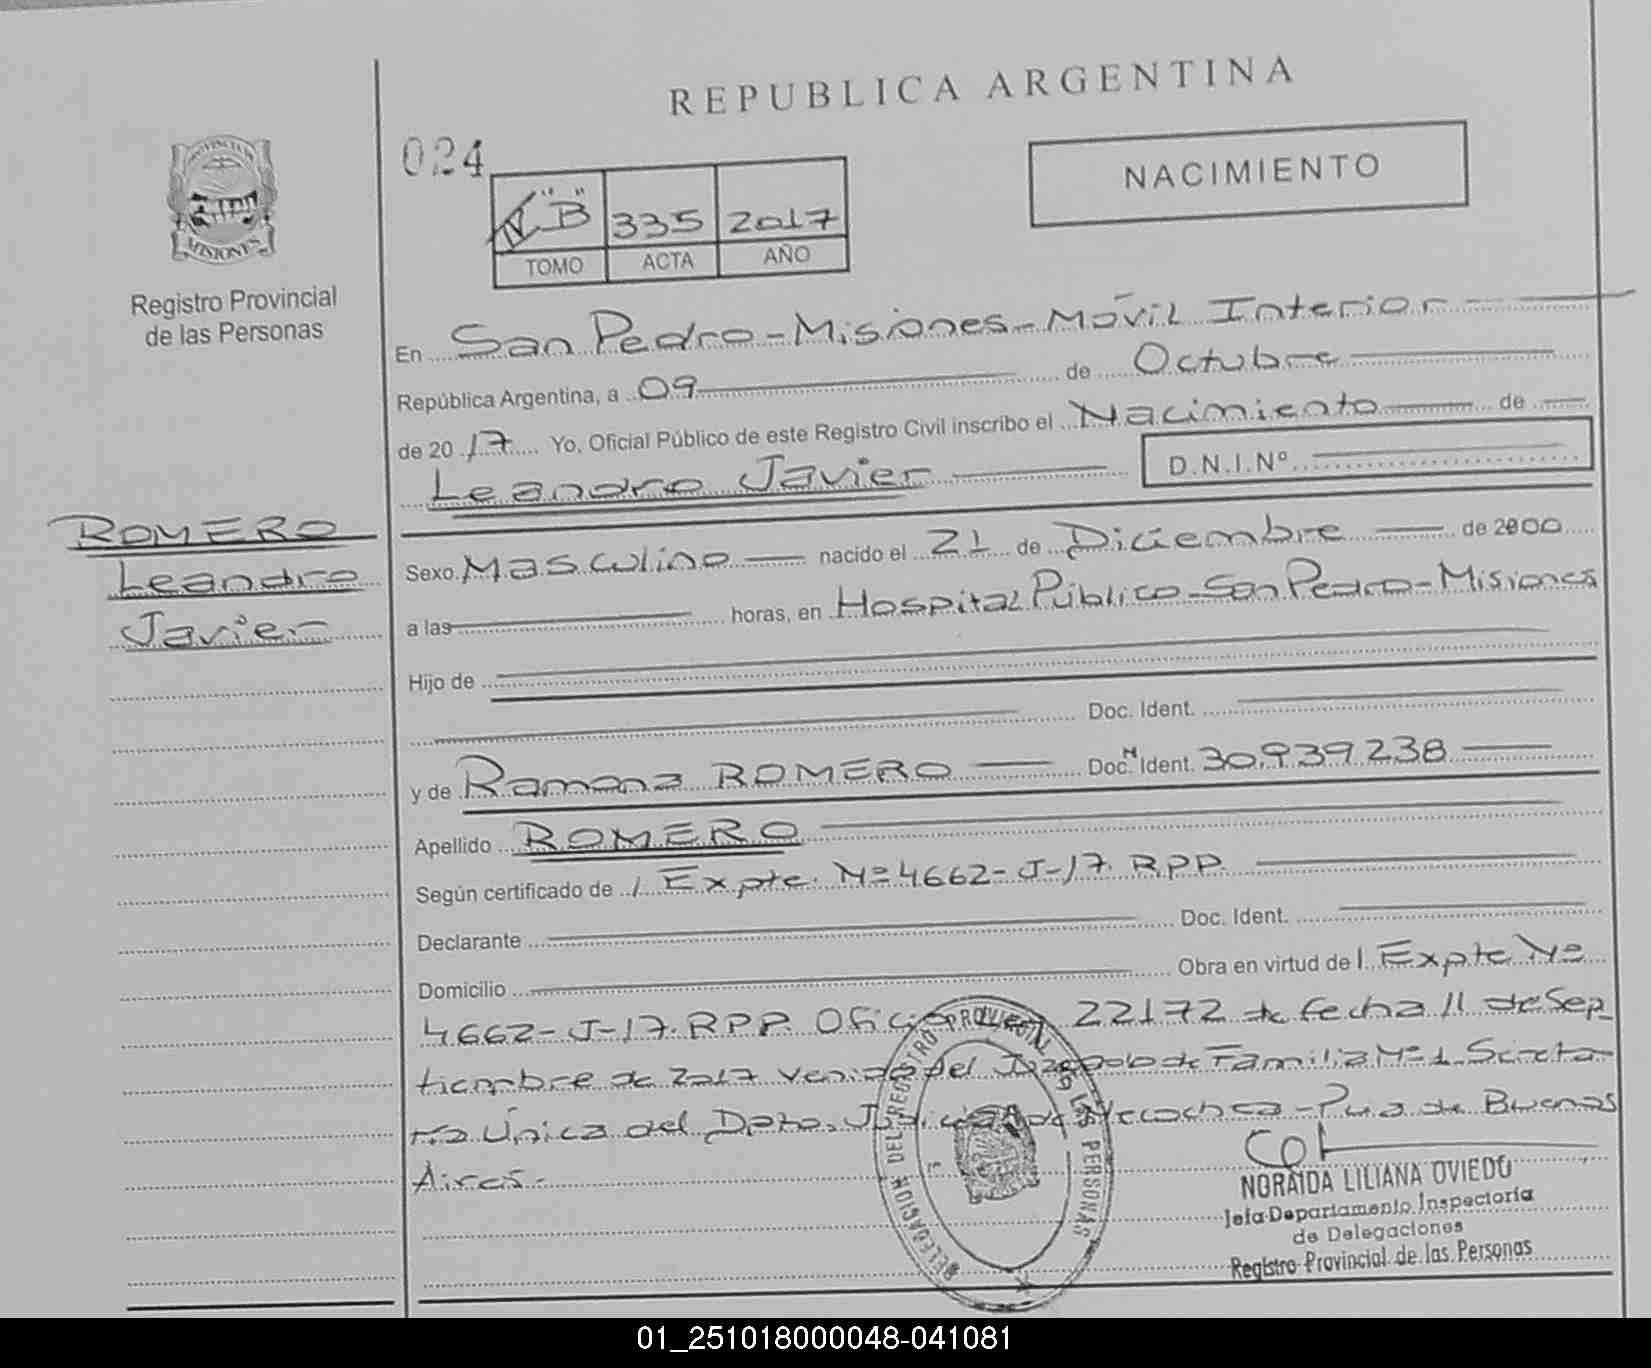 REPUBLICA ARGENTINA
024
NACIMIENTO
IV "B" 335 2017
TOMO ACTA AÑO
PROVINCIA DE MISIONES
Registro Provincial
de las Personas
En San Pedro-Misiones-Móvil Interior
República Argentina, a 09 de Octubre
de 2017 Yo, Oficial Público de este Registro Civil inscribo el Nacimiento de
Leandro Javier D.N.I.Nº
ROMERO
Leandro
Javier.-
Sexo Masculino nacido el 21 de Diciembre de 2000
a las horas, en Hospital Público-San Pedro-Misiones
Hijo de
Doc. Ident.
y de Ramona ROMERO Doc. N Ident. 30.939.238
Apellido ROMERO
Según certificado de / Expte. Nº 4662-J-17. RPP.
Declarante Doc. Ident.
Domicilio Obra en virtud de / Expte Nº
4662-J-17. RPP. Oficio 22172 de fecha 11 de Sep
tiembre de 2017 venido del Juzgado de Familia Nº 1 Secreta-
ría Única del Dpto. Judicial de Necochea-Pcia de Buenos
Aires.-
DELEGACION DEL REGISTRO PROVINCIAL DE LAS PERSONAS
NORAIDA LILIANA OVIEDO
Jefa Departamento Inspectoría
de Delegaciones
Registro Provincial de las Personas
01_251018000048-041081